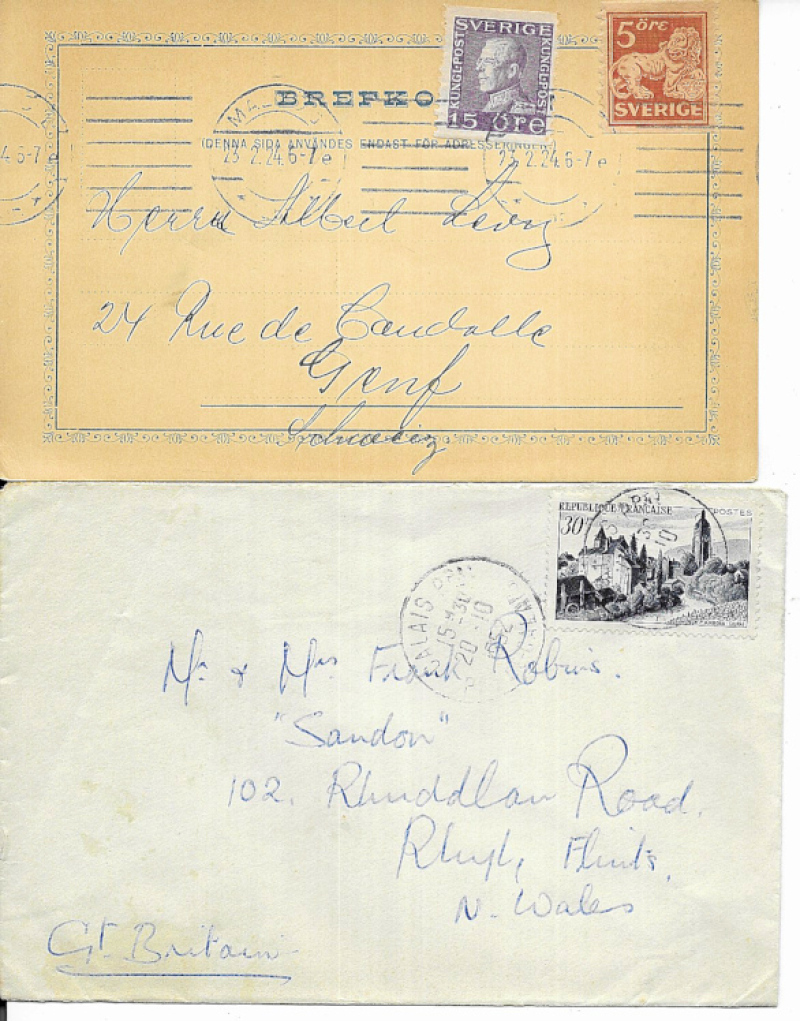 SVERIGE
KUNGL·POST
KUNGL·POST
15 öre
5 öre
SVERIGE
BREFKO
(DENNA SIDA ANVÄNDES ENDAST FÖR ADRESSERINGEN.)
23.2.24.6-7 e
23.2.24.6-7 e
4 6-7 e
Herrn Albert Levy
24 Rue de Candolle
Genf
Schweiz
REPUBLIQUE FRANÇAISE
POSTES
30F
CALAIS
15H30
20-10
1952
Mr & Mrs Frank Robins.
"Sandon"
102. Rhuddlan Road.
Rhyl, Flints,
N. Wales
Gt. Britain